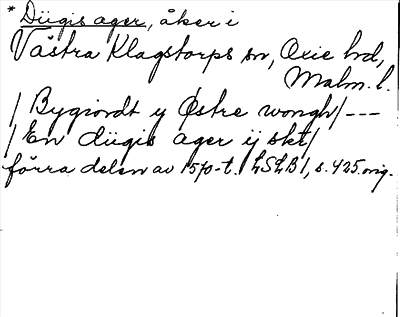 * Dügis ager, åker i
Västra Klagstorps sn, Oxie hd,
Malm. l.
/ Bygiordt y Østre wongh/ ---
/ En dügis ager ÿ skt/
förra delen av 1570-t. LSLB 1, s. 425. orig.